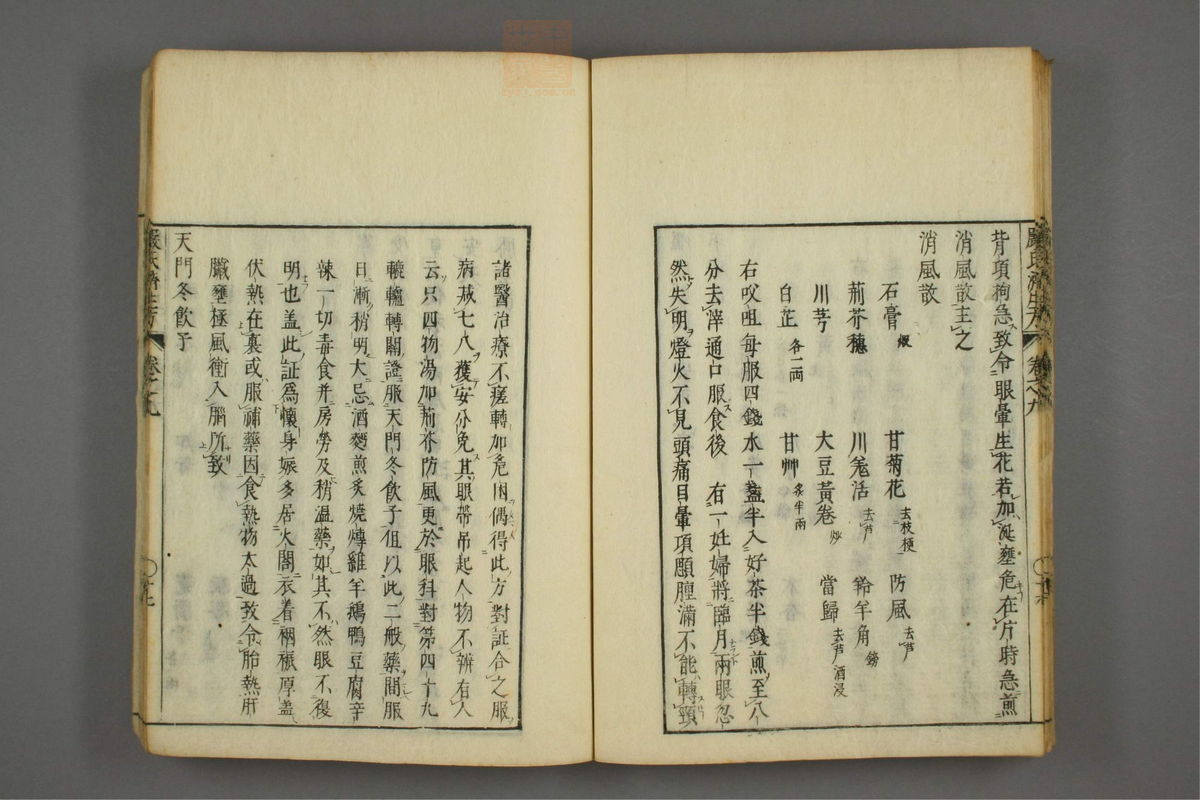 背項拘急致令眼暈生花若加涎壅危在片時急煎
消風散主之
消風散
石膏煅 甘菊花去枝梗 防風去芦
荊芥穗 川羗活去芦 羚羊角鎊
川芎 大豆黃卷炒 當歸去芦酒浸
白芷各一両 甘艸炙半兩
右㕮咀每服四錢水一盞半入好茶半錢煎至八
分去滓通口服食後 有一妊婦將臨月兩眼忽
然失明燈火不見頭痛目暈項顋腫滿不能轉頸
諸醫治療不瘥轉加危困偶得此方對証合之服
病减七八獲安分免其眼帶吊起人物不辨有人
云只四物湯加荊芥防風更於眼科對第四十九
轆轤轉關證服天門冬飲子但以此二般藥間服
日漸稍明大忌酒麪煎炙燒煿雞羊鵝鴨豆腐辛
辣一切毒食并房勞及稍溫藥如其不然眼不復
明也盖此証爲懷身娠多居火閣衣着裀褥厚盖
伏熱在裏或服補藥因食熱物太過致令胎熱肝
臟壅極風衝入腦所致
天門冬飲子
嚴氏濟生方 卷之九